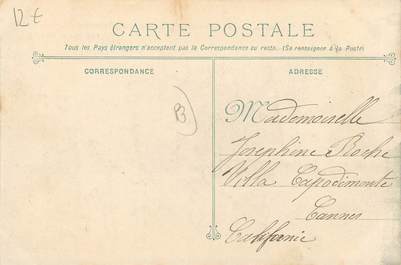 12€
CARTE POSTALE
Tous les Pays étrangers n'acceptent pas la Correspondance au recto. (Se renseigner à la Poste)
CORRESPONDANCE
ADRESSE
B
Mademoiselle
Josephine Roche
Villa Capodimonte
Cannes
Californie